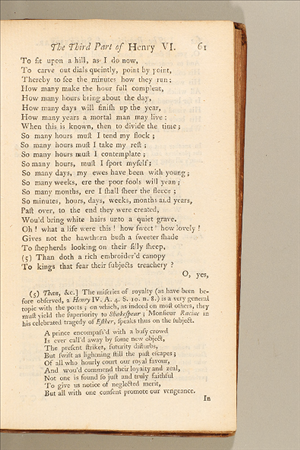 The Third Part of Henry VI. 61
To sit upon a hill, as I do now,
To carve out dials queintly, point by point,
Thereby to see the minutes how they run;
How many make the hour full compleat,
How many hours bring about the day,
How many days will finish up the year,
How many years a mortal man may live:
When this is known, then to divide the time;
So many hours must I tend my flock;
So many hours must I take my rest;
So many hours must I contemplate;
So many hours, must I sport myself;
So many days, my ewes have been with young;
So many weeks, ere the poor fools will yean;
So many months, ere I shall sheer the fleece;
So minutes, hours, days, weeks, months and years,
Past over, to the end they were created,
Wou'd bring white hairs unto a quiet grave.
Oh! what a life were this! how sweet! how lovely!
Gives not the hawthorn bush a sweeter shade
To shepherds looking on their silly sheep,
(5) Than doth a rich embroider'd canopy
To kings that fear their subjects treachery?
O, yes,
(5) Than, &c.] The miseries of royalty (as have been be-
fore observed, 2 Henry IV. A. 4. S. 10. n. 8.) is a very general
topic with the poets; on which, as indeed on most others, they
must yield the superiority to Shakespear; Monsieur Racine in
his celebrated tragedy of Esther, speaks thus on the subject.
A prince encompass'd with a busy crowd
Is ever call'd away by some new object,
The present strikes, futurity disturbs,
But swift as lightening still the past escapes;
Of all who hourly court our royal favour,
And wou'd commend their loyalty and zeal,
Not one is found so just and truly faithful
To give us notice of neglected merit,
But all with one consent promote our vengeance.
In